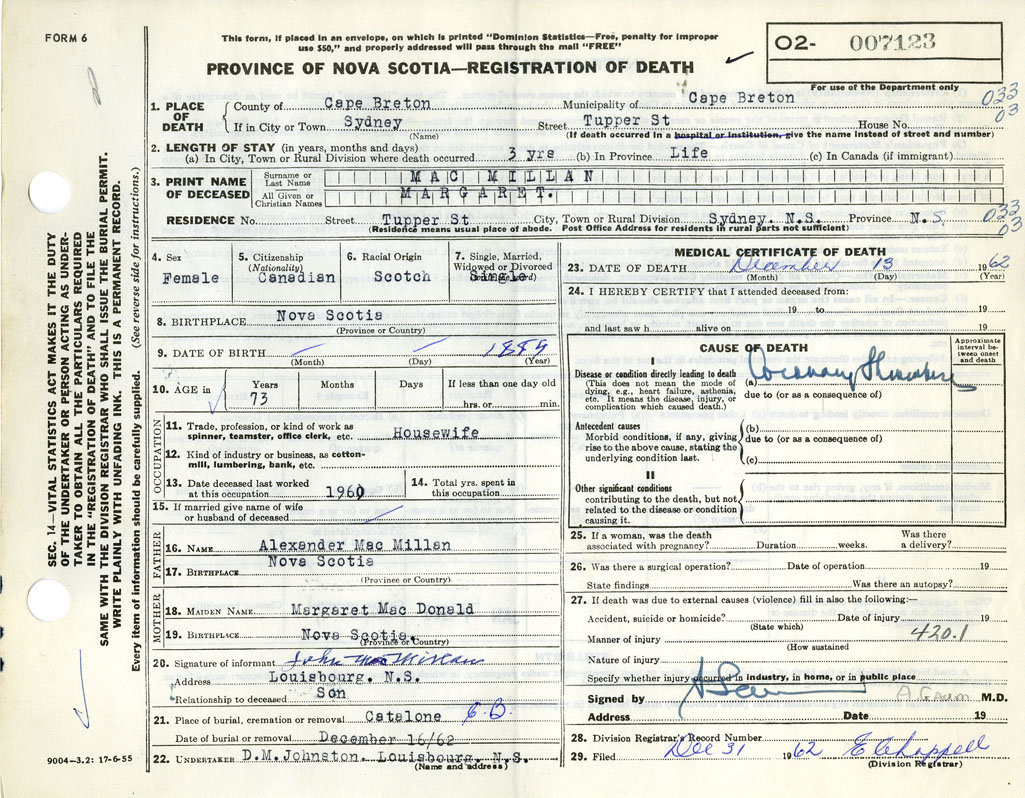 FORM 6
This form, if placed in an envelope, on which is printed "Dominion Statistics—Free, penalty for improper
use $50," and properly addressed will pass through the mail "FREE"
PROVINCE OF NOVA SCOTIA—REGISTRATION OF DEATH
O2- 007123
For use of the Department only
1. PLACE OF DEATH
County of Cape Breton Municipality of Cape Breton 033
03
If in City or Town Sydney Street Tupper St House No.
(Name) (If death occurred in a hospital or institution, give the name instead of street and number)
2. LENGTH OF STAY (in years, months and days)
(a) In City, Town or Rural Division where death occurred 3 yrs (b) In Province Life (c) In Canada (if immigrant)
3. PRINT NAME OF DECEASED
Surname or Last Name MAC MILLAN
All Given or Christian Names MARGARET.
RESIDENCE No. Street Tupper St City, Town or Rural Division Sydney. N.S. Province N.S. 033
03
(Residence means usual place of abode. Post Office Address for residents in rural parts not sufficient)
4. Sex
Female
5. Citizenship
(Nationality)
Canadian
6. Racial Origin
Scotch
7. Single, Married,
Widowed or Divorced
Single
8. BIRTHPLACE Nova Scotia
(Province or Country)
9. DATE OF BIRTH 1889
(Month) (Day) (Year)
10. AGE in Years Months Days If less than one day old
73 hrs. or min.
OCCUPATION
11. Trade, profession, or kind of work as
spinner, teamster, office clerk, etc. Housewife
12. Kind of industry or business, as cotton-
mill, lumbering, bank, etc.
13. Date deceased last worked
at this occupation 1960
14. Total yrs. spent in
this occupation
15. If married give name of wife
or husband of deceased
FATHER
16. NAME Alexander Mac Millan
17. BIRTHPLACE Nova Scotia
(Province or Country)
MOTHER
18. MAIDEN NAME Margaret Mac Donald
19. BIRTHPLACE Nova Scotia.
(Province or Country)
20. Signature of informant John MacMillan
Address Louisbourg. N.S.
Relationship to deceased Son
21. Place of burial, cremation or removal Catalone C.B.
Date of burial or removal December 16/62
22. UNDERTAKER D.M.Johnston. Louisbourg. N.S.
(Name and address)
MEDICAL CERTIFICATE OF DEATH
23. DATE OF DEATH December 13 1962
(Month) (Day) (Year)
24. I HEREBY CERTIFY that I attended deceased from:
19 to 19
and last saw h alive on 19
CAUSE OF DEATH
Approximate
interval be-
tween onset
and death
I
Disease or condition directly leading to death
(This does not mean the mode of
dying, e.g., heart failure, asthenia,
etc. It means the disease, injury, or
complication which caused death.)
(a) Coronary Thrombosis
due to (or as a consequence of)
Antecedent causes
Morbid conditions, if any, giving
rise to the above cause, stating the
underlying condition last.
(b)
due to (or as a consequence of)
(c)
II
Other significant conditions
contributing to the death, but not
related to the disease or condition
causing it.
25. If a woman, was the death
associated with pregnancy? Duration weeks. Was there
a delivery?
26. Was there a surgical operation? Date of operation 19
State findings Was there an autopsy?
27. If death was due to external causes (violence) fill in also the following:—
Accident, suicide or homicide? Date of injury 19
(State which)
Manner of injury 420.1
(How sustained
Nature of injury
Specify whether injury occurred in industry, in home, or in public place
Signed by A Gaum M.D.
Address Date 19
28. Division Registrar's Record Number
29. Filed Dec 31 1962 E Chappell
(Division Registrar)
SEC. 14—VITAL STATISTICS ACT MAKES IT THE DUTY
OF THE UNDERTAKER OR PERSON ACTING AS UNDER-
TAKER TO OBTAIN ALL THE PARTICULARS REQUIRED
IN THE "REGISTRATION OF DEATH" AND TO FILE THE
SAME WITH THE DIVISION REGISTRAR WHO SHALL ISSUE THE BURIAL PERMIT.
WRITE PLAINLY WITH UNFADING INK. THIS IS A PERMANENT RECORD.
Every item of information should be carefully supplied. (See reverse side for instructions.)
9004—3.2: 17-6-55